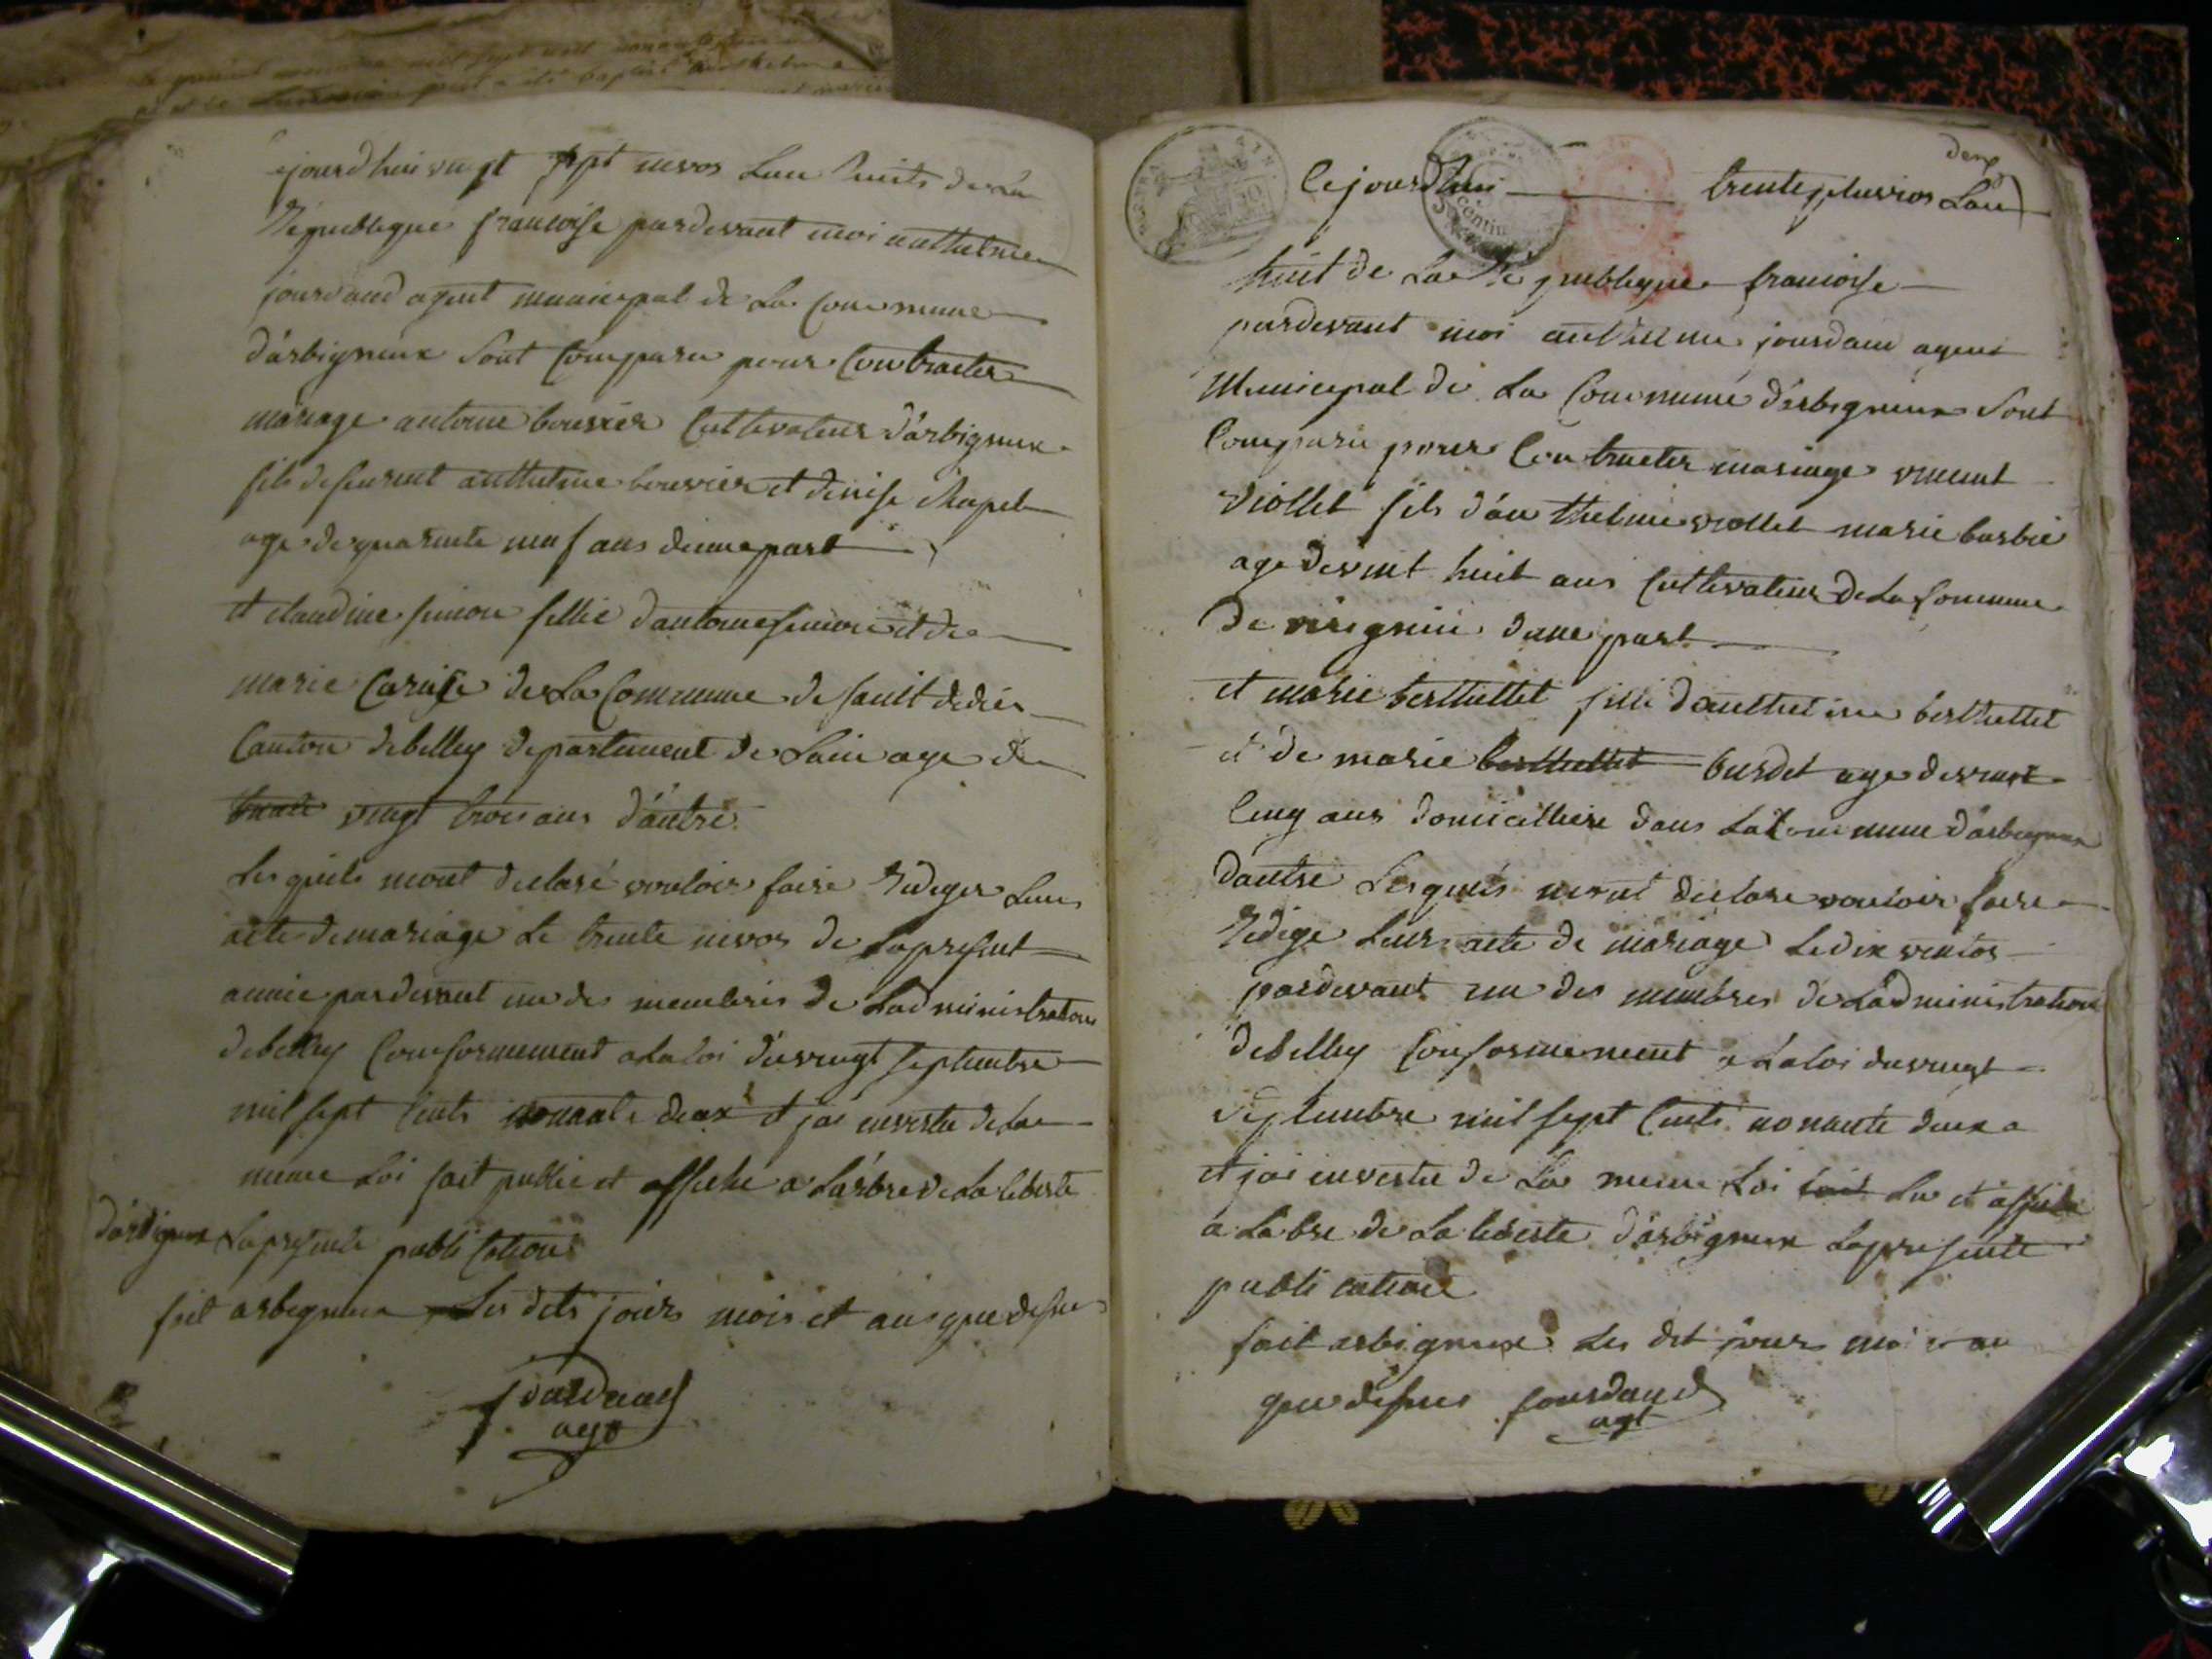 cejourdhui vingt sept nivos Lan huits de La
République francoise pardevant moi anthelme
jourdand agent municipal de La Commune
d'arbigneux sont Comparu pour Contracter
mariage antoine bouvier Cultivateur d'arbigneux
fils de feu anthelme bouvier et denise Chapel
age de quarente neuf ans dune part
et claudine simon fillie dantoine simon et de
marie de La Commune de
Canton debelley departement de Lain age de
trente vingt trois ans d'autre
Les quels mont declaré vouloir faire Rediger Leur
acte de mariage Le trente nivos de Lapresent
année pardevant un des membres de Ladministration
debelley Conformement a La loi du vingt septembre
mil sept Cents nonante deux et jai investu de La
meme Loi fait publie et affiche a Larbre de La liberte
d'arbigneux Lapresente publication
fait arbigneux Les dits jours mois et ans que dessus
jourdand
agt
deux
Cejourdhui trente pluvios Lan
huit de La République francoise
pardevant moi anthelme jourdand agent
Municipal de La Commune d'arbigneux sont
Comparu pour Contracter mariage vincent
viollet fils d'anthelme viollet marie barbié
age de vint huit ans Cultivateur de La Commune
de virignin dune part
et marie berthellet fille d'anthelme berthellet
et de marie berthellet burdet age de vint
Cinq ans domicilliere dans La Commune d'arbigneux
dautre Lesquels mont declare vouloir faire
Redige Leur acte de mariage Le dix ventos
pardevant un des membres de Ladministration
debelley Conformement a La loi du vingt
septembre mil sept Cents nonante deux
et jai investu de La meme Loi fait Lu et affiche
a Labre de La liberte d'arbigneux Lapresente
publication
fait arbigneux Les dit jours mois an
que dessus jourdand
agt